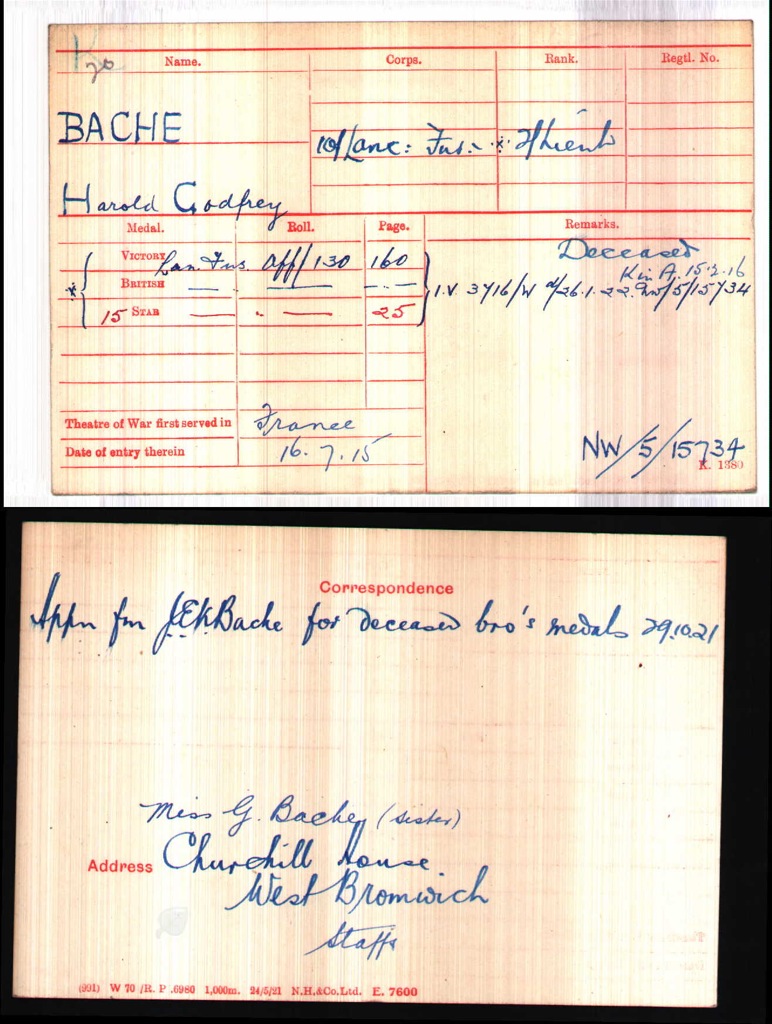 Name. Corps. Rank. Regtl. No.
BACHE
10/Lanc: Fus:- * 2/Lieut
Harold Godfrey
Medal. Roll. Page. Remarks.
VICTORY Lan. Fus. Off/130 160 Deceased
K in A. 15.2.16
* BRITISH — — — I.V. 3716/W d/26.1.22. NW/5/15734
15 STAR — " — 25
Theatre of War first served in France
Date of entry therein 16.7.15
NW/5/15734
K. 1380
Correspondence
Appn fm J.E.K. Bache for deceased bro's medals 29.10.21
Miss G. Bache (sister)
Address Churchill House
West Bromwich
Staffs
(991) W 70 /R. P .6980 1,000m. 24/5/21 N.H,&Co.Ltd. E. 7600